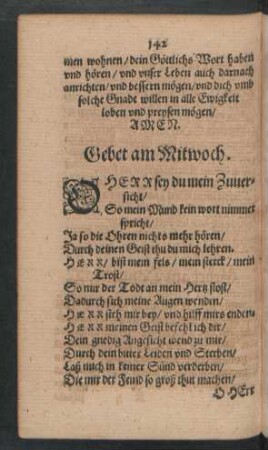 142
men wohnen / dein Göttlichs Wort haben
vnd hören / vnd vnser Leben auch darnach
anrichten / vnd bessern mögen / vnd dich vmb
solche Gnadt willen in alle Ewigkeit
loben vnd preysen mögen /
AMEN.
Gebet am Mitwoch.
O HERR sey du mein Zuuer-
sicht /
So mein Mund kein wort nimmer
spricht /
Ja so die Ohren nichts mehr hören /
Durch deinen Geist thu du mich lehren.
HÆRR / bist mein fels / mein sterck / mein
Trost /
So mir der Todt an mein Hertz stost /
Dadurch sich meine Augen wenden /
HÆRR steh mir bey / vnd hilff mirs enden
HÆRR meinen Geist befehl ich dir /
Dein gnedig Angesicht wend zu mir /
Durch dein bitter Leiden vnd Sterben /
Laß mich in keiner Sünd verderben /
Die mir der Feind so groß thut machen /
O HErr